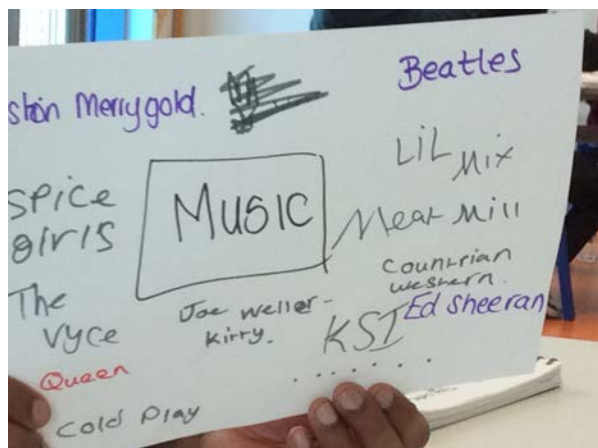 ston Merrygold.
Beatles
LiL Mix
Spice
girls
MUSIC
Meak Mill
Countrian
western.
The
Vyce
Joe Weller-
Kirry.
KSI
Ed Sheeran
Queen
Cold Play